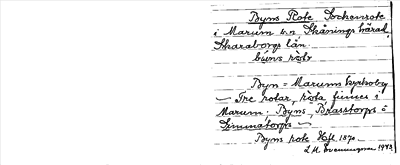 Byns Rote Sockenrote
i Marum s.n Skånings härad,
Skaraborgs län.
byns rote
Byn = Marums kyrkoby
Tre rotar, rota finnes i
Marum: Byns, Brasstorps &
Simmatorps
Byns rote Hfl 1870
L.M. Svenungsson 1943